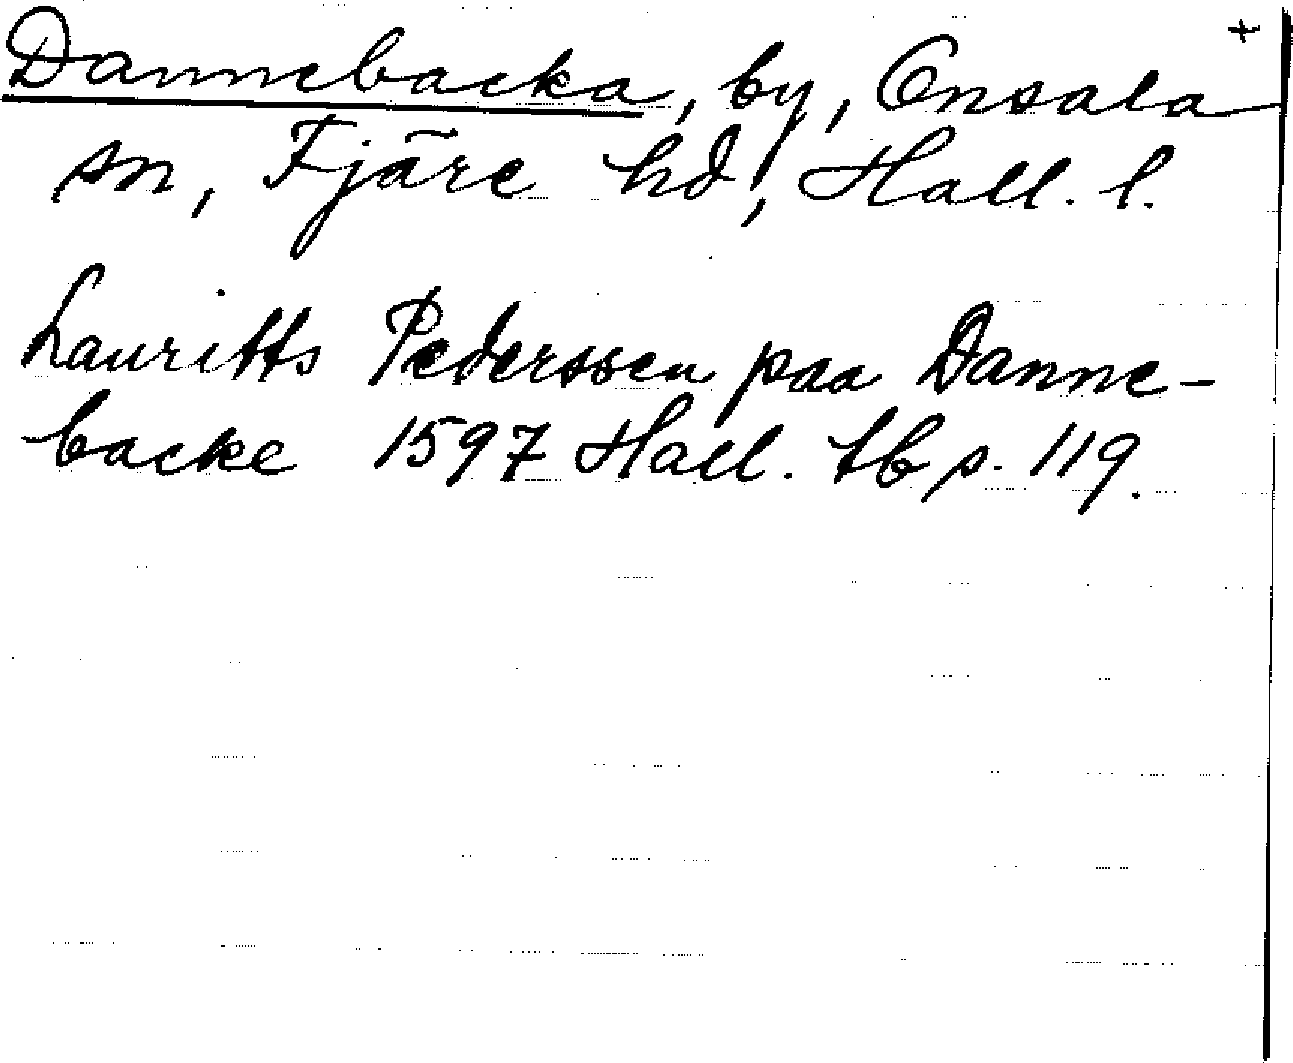 Dannebacka, by, Onsala +
sn, Fjäre hd, Hall. l.
Lauritts Pederssen paa Danne-
backe 1597 Hall. tb s. 119.